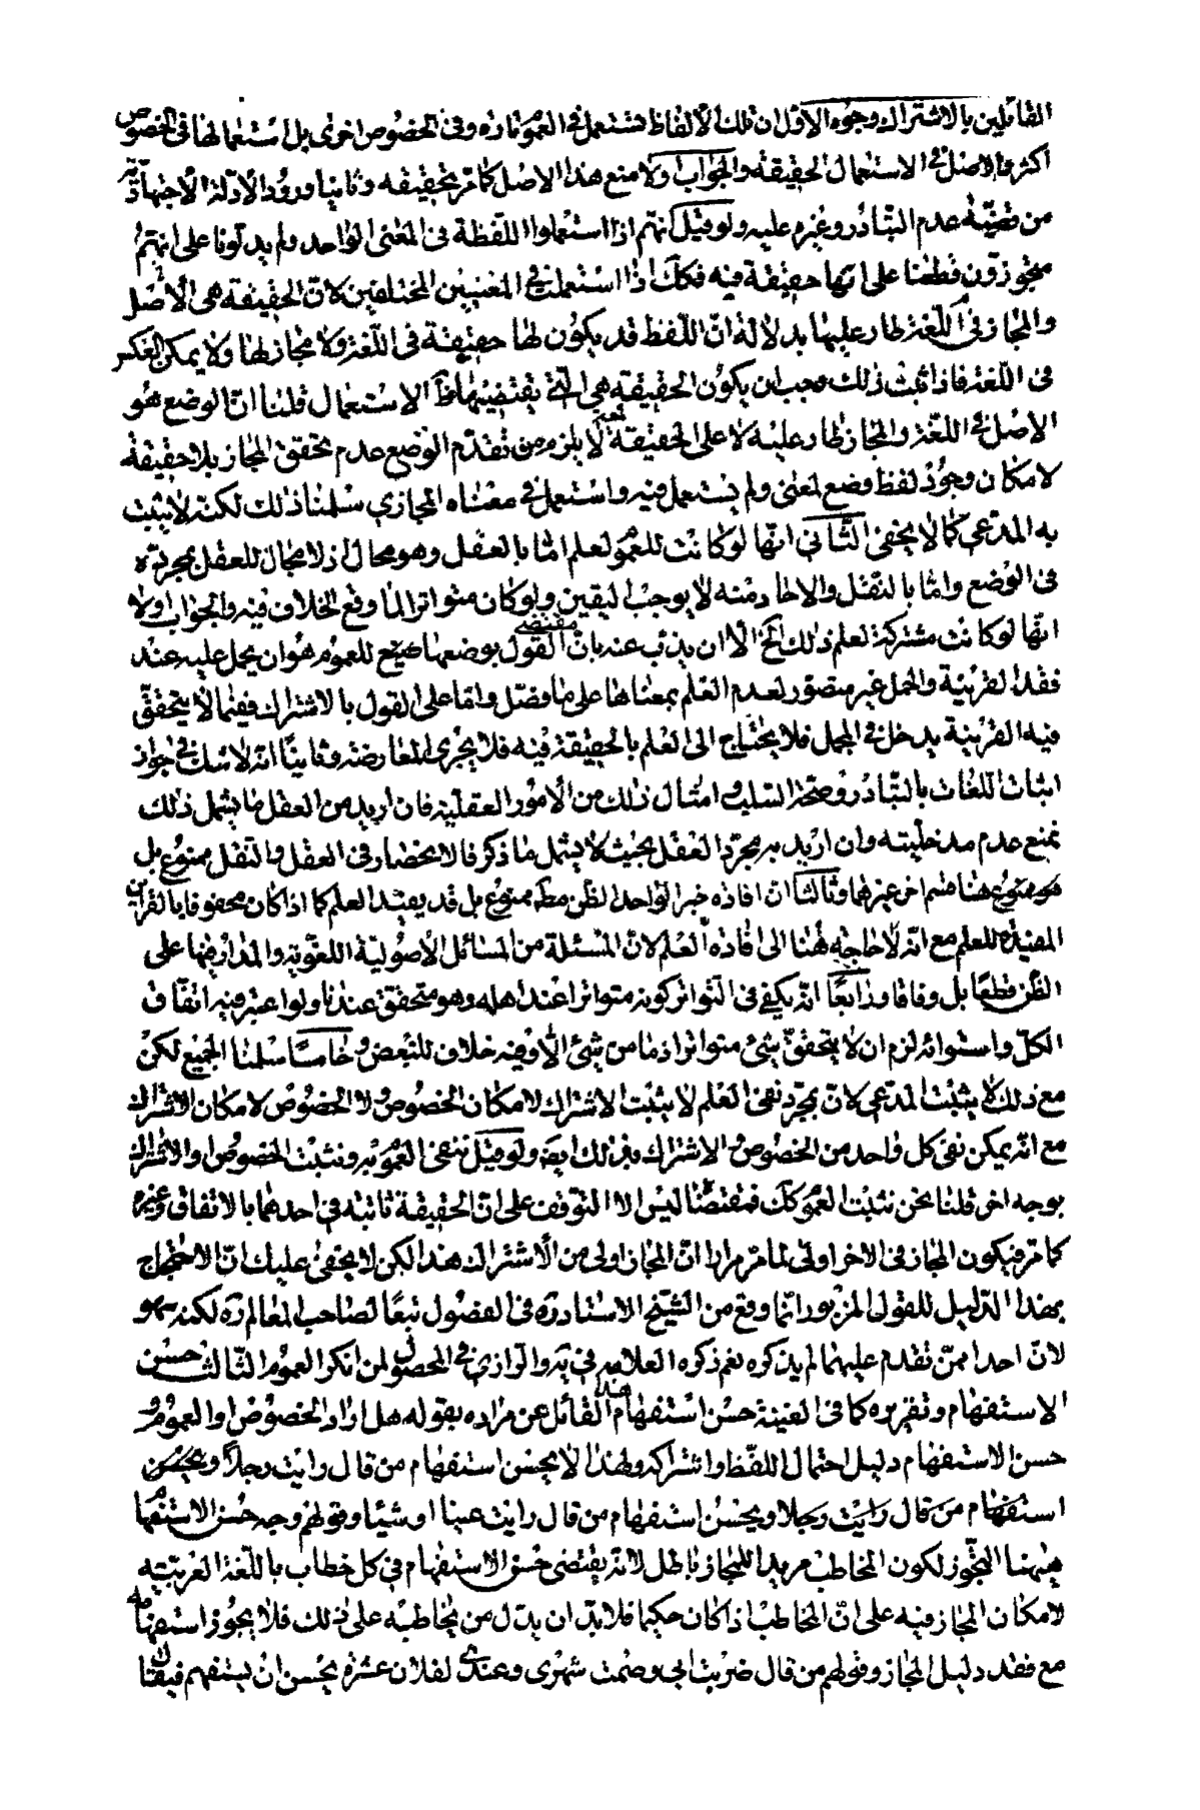 القائلين بالاشتراك وجوه الاول ان تلك الألفاظ تستعمل في العموم تارة وفي الخصوص اخرى بل استعمالها في الخصوص
اكثر والاصل في الاستعمال الحقيقة والجواب اولا منع هذا الاصل كما مر تحقيقه وثانيا ورود الأدلة الاجتهاديّة
من قضيّة عدم التبادر وغيره عليه ولو قيل انهم اذا استعملوا اللفظة في المعنى الواحد ولم يدلونا على انهم
متجوزون قطعنا على انها حقيقة فيه فكك اذا استعملت في المعنيين المختلفين لان الحقيقة هي الأصل
والمجاز في اللغة طار عليها بدلالة انّ اللفظ قد يكون لها حقيقة في اللغة ولا مجاز لها ولا يمكن العكس
في اللغة فاذا ثبت ذلك وجب ان يكون الحقيقة هي التي يقتضيها ظ الاستعمال قلنا انّ الوضع هو
الاصل في اللغة والمجاز طار عليه لا على الحقيقة لا يلزم من تقدّم الوضع عدم تحقق المجاز بلا حقيقة
لامكان وجود لفظ وضع لمعنى ولم يستعمل فيه واستعمل في معناه المجازي سلمنا ذلك لكنه لا يثبت
به المدّعي كما لا يخفى الثّاني انّها لو كانت للعموم لعلم امّا بالعقل وهو محال اذ لا مجال للعقل بمجرده
في الوضع وامّا بالنقل والاحاد منه لا يوجب اليقين ولو كان متواترا لما وقع الخلاف فيه والجواب اولا
انّها لو كانت مشتركة لعلم ذلك الخ الّا ان يذب عنه بانّ مقتضى القول بوضعها للعموم هو ان يحمل عليه عند
فقد القرينة والحمل غير متصوّر لعدم العلم بمعناها على ما فصّل وامّا على القول بالاشتراك ففيما لا يتحقّق
فيه القرينة يدخل في المجمل فلا يحتاج الى العلم بالحقيقة فيه فلا يجري المعارضة وثانيًا انّه لا شك في جواز
اثبات اللغات بالتبادر وصحة السلب وامثال ذلك من الأمور العقليّة فان اريد من العقل ما يشمل ذلك
نمنع عدم مدخليته وان اريد به مجرّد العقل بحيث لا يشمل ما ذكر فالانحصار في العقل والنقل ممنوع بل
هو ممنوع هنا قسم اخر غيرها وثالثا انّ افادة خبر الواحد الظن مط ممنوع بل قد يفيد العلم كما اذا كان محفوفا بالقراين
المفيدة للعلم مع انّه لا حاجة هنا الى افادة العلم لانّ المسئلة من المسائل الأصوليّة اللغويّة والمدار فيها على
الظن قطعًا بل وفاقا ورابعًا انّه يكفي في التواتر كونه متواترا عند اهله وهو متحقق عندنا ولو اعتبر فيه اتفاق
الكلّ واستوائه لزم ان لا يتحقّق شيئ متواترا اذ ما من شيئ الّا وفيه خلاف للبعض وخامسًا سلمنا الجميع لكن
مع ذلك لا يثبت المدّعي لانّ مجرّد نفي العلم لا يثبت الاشتراك لامكان الخصوص ولا الخصوص لامكان الاشتراك
مع انّه يمكن نفي كل واحد من الخصوص والاشتراك بذلك ايضا ولو قيل ننفي العموم به ونثبت الخصوص او الاشتراك
بوجه اخر قلنا نحن نثبت العموم كك فمقتضا ليس الا التوقف على انّ الحقيقة ثابتة في احدهما بالاتفاق وغيره
كما مر فيكون المجاز في الاخر اولى لما مرّ مرارا انّ المجاز اولى من الاشتراك هذا لكن لا يخفى عليك انّ الاحتجاج
بهذا الدّليل للقول المزبور انّما وقع من الشيخ الاستاد ره في الفصول تبعًا لصاحب المعالم ره لكنه سهو
لانّ احدا ممّن تقدم عليهما لم يذكره نعم ذكره العلامة في يه والرازي في المحصول لمن انكر العموم الثّالث حسن
الاستفهام وتقريره كما في الغنية حسن استفهام القائل عن مراده بقوله هل اراد الخصوص او العموم و
حسن الاستفهام دليل احتمال اللفظ واشتراكه ولهذا لا يحسن استفهام من قال رايت رجلاً ويحسن
استفهام من قال رايت رجلا ويحسن استفهام من قال رايت عينا او شيئا وقولهم وجه حسن الاستفهام
هيهنا التجّوز لكون المخاطب مريدا للمجاز باطل لانّه يقتضي حسن الاستفهام في كل خطاب باللّغة العربيّة
لامكان المجاز فيه على انّ المخاطب اذا كان حكيما فلا بدّ ان يدّل من يخاطبه على ذلك فلا يجوز استفهامه
مع فقد دليل المجاز وقولهم من قال ضربت ابى وصمت شهرى وعندى لفلان عشرة يحسن ان يستفهم فيقال